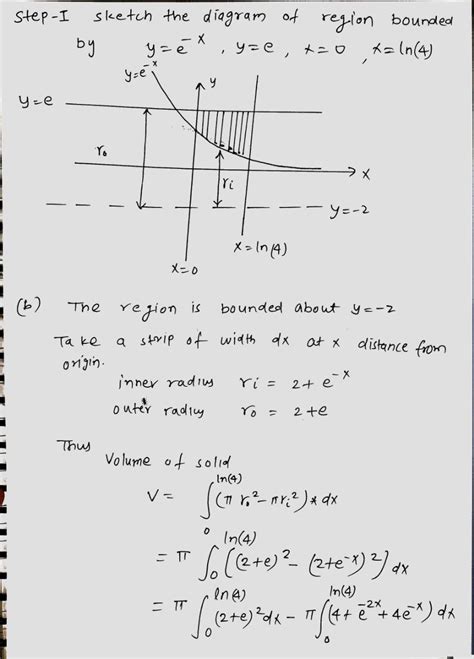 Step-I sketch the diagram of region bounded
by y=e^-x, y=e, x=0, x=ln(4)
y=e^-x
y
y=e
r₀
rᵢ
x
y=-2
x=ln(4)
x=0
(b) The region is bounded about y=-2
Take a strip of width dx at x distance from
origin.
inner radius rᵢ = 2+e^-x
outer radius r₀ = 2+e
Thus
Volume of solid
V = ∫₀^ln(4) (π r₀² - π rᵢ²) * dx
= π ∫₀^ln(4) [(2+e)² - (2+e^-x)²] dx
= π ∫₀^ln(4) (2+e)² dx - π ∫₀^ln(4) (4+e^-2x+4e^-x) dx